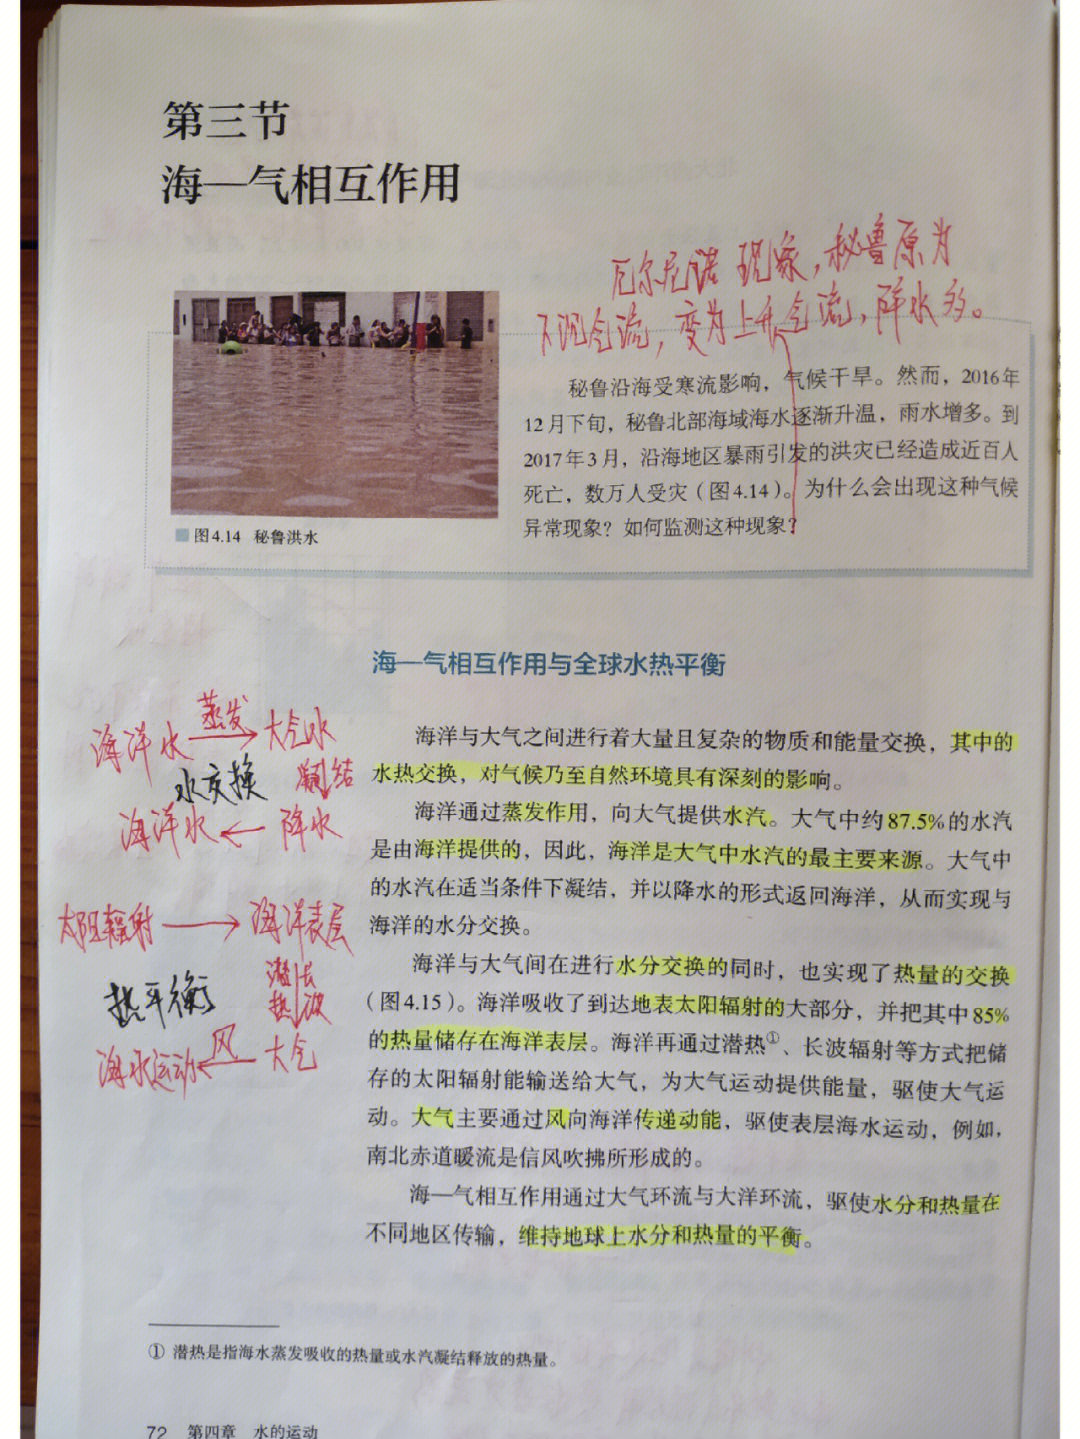 第三节
海—气相互作用
厄尔尼诺现象,秘鲁原为
下沉气流,变为上升气流,降水多。
秘鲁沿海受寒流影响，气候干旱。然而，2016年
12月下旬，秘鲁北部海域海水逐渐升温，雨水增多。到
2017年3月，沿海地区暴雨引发的洪灾已经造成近百人
死亡，数万人受灾（图4.14）。为什么会出现这种气候
异常现象？如何监测这种现象？
图4.14 秘鲁洪水
海—气相互作用与全球水热平衡
海洋与大气之间进行着大量且复杂的物质和能量交换，其中的
水热交换，对气候乃至自然环境具有深刻的影响。
海洋通过蒸发作用，向大气提供水汽。大气中约87.5%的水汽
是由海洋提供的，因此，海洋是大气中水汽的最主要来源。大气中
的水汽在适当条件下凝结，并以降水的形式返回海洋，从而实现与
海洋的水分交换。
海洋与大气间在进行水分交换的同时，也实现了热量的交换
（图4.15）。海洋吸收了到达地表太阳辐射的大部分，并把其中85%
的热量储存在海洋表层。海洋再通过潜热①、长波辐射等方式把储
存的太阳辐射能输送给大气，为大气运动提供能量，驱使大气运
动。大气主要通过风向海洋传递动能，驱使表层海水运动，例如，
南北赤道暖流是信风吹拂所形成的。
海—气相互作用通过大气环流与大洋环流，驱使水分和热量在
不同地区传输，维持地球上水分和热量的平衡。
海洋水 蒸发 → 大气水
水交换 凝结
海洋水 ← 降水
太阳辐射 → 海洋表层
热平衡 潜热 长波
海水运动 ← 风 大气
① 潜热是指海水蒸发吸收的热量或水汽凝结释放的热量。
72 第四章 水的运动